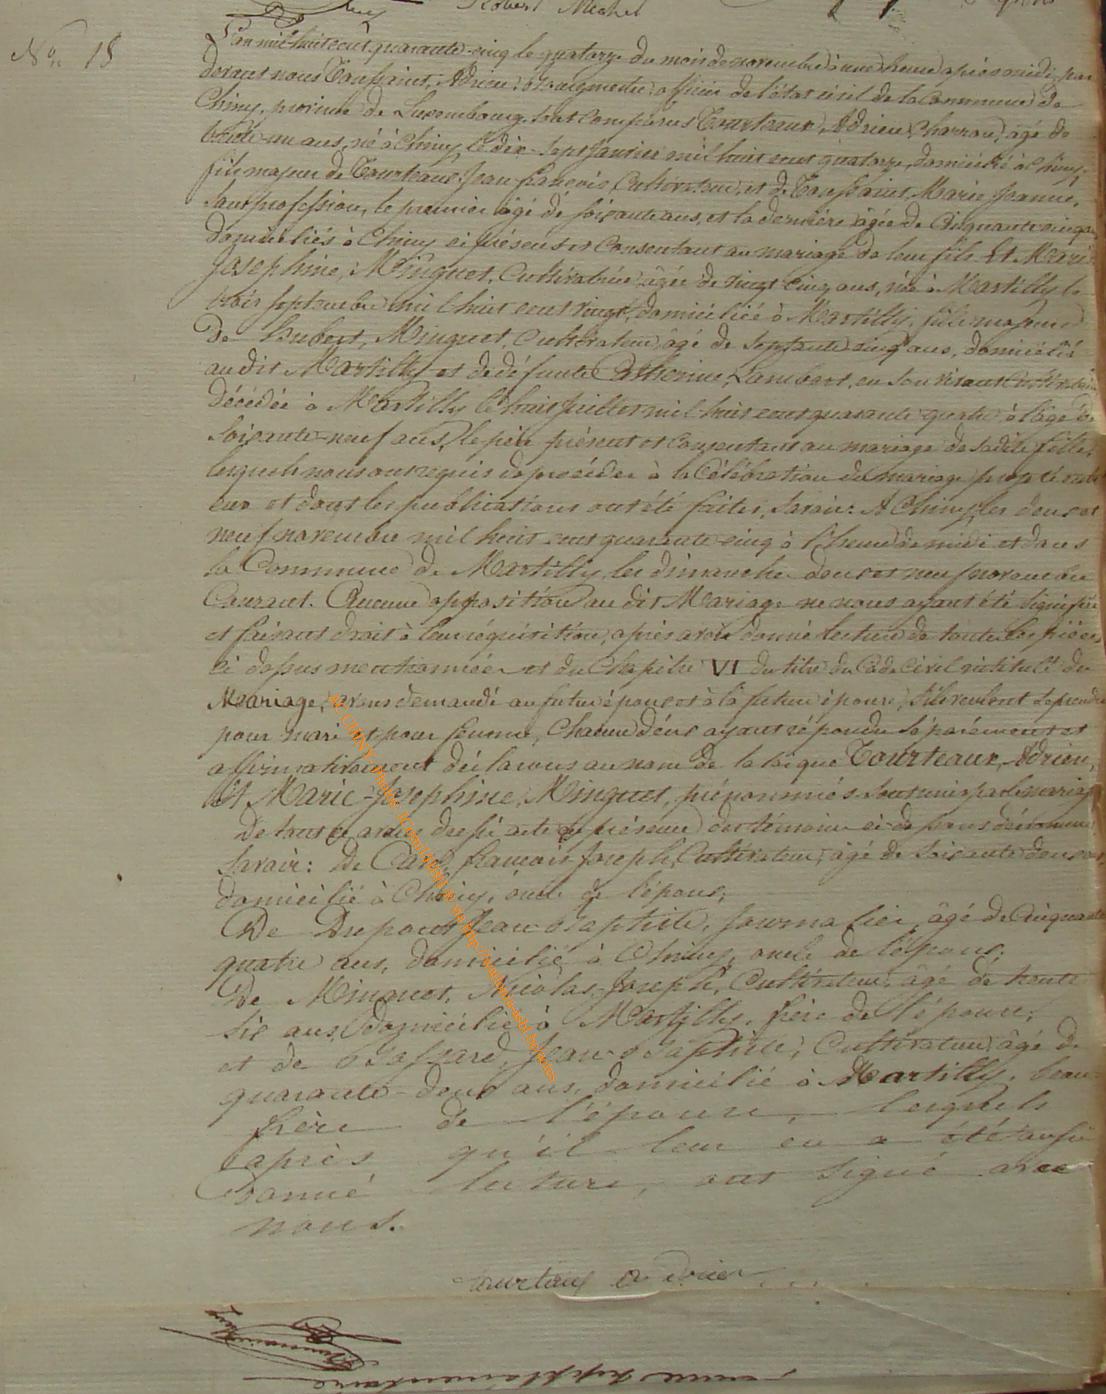 Robert Michel
No. 18
L'an mil huit cent quarante-cinq le quatorze du mois de novembre à une heure après midi, par
devant nous Toussaint, Adrien, Bourgmestre officier de l'état civil de la Commune de
Chiny, province de Luxembourg, sont comparus Tourteaux, Adrien, Charron, âgé de
trente-un ans, né à Chiny le dix-sept janvier mil huit cent quatorze, domicilié à Chiny,
fils majeur de Tourteaux, Jean-françois, Cultivateur, et de Toussaint, Marie Jeanne,
sans profession, le premier âgé de soixante ans, et la dernière âgée de Cinquante cinq
domiciliés à Chiny ci présents et Consentant au mariage de leur fils. Et Marie
Josephine, Minguet, Cultivatrice, âgée de vingt cinq ans, née à Martilly le
trois septembre mil huit cent vingt, domiciliée à Martilly, fille majeure
De hubert, Minguet, Cultivateur, âgé de septante cinq ans, domicilié
au dit Martilly et de défunte Catherine, Lambert, en son vivant Cultivatrice
décédée à Martilly le huit juillet mil huit cent quarante quatre à l'âge de
soixante-neuf ans, le père présent et consentant au mariage de sa dite fille,
lesquels nous ont requis de procéder à la Célébration du mariage projeté entre
eux et dont les publications ont été faites, savoir: A Chiny, les deux et
neuf novembre mil huit cent quarante-cinq à l'heure de midi et dans
la Commune de Martilly les dimanche deux et neuf novembre
Courant. Aucune opposition au dit Mariage ne nous ayant été signifiée
et faisant droit à leur réquisition, après avoir donné lecture de toutes les pièces
ci dessus mentionnées et du Chapitre VI du titre du Code civil intitulé du
Mariage, avons demandé au futur époux et à la future épouse, s'ils veulent se prendre
pour mari et pour femme, Chacun d'eux ayant répondu séparément et
affirmativement déclarons au nom de la loi que Tourteaux, Adrien,
Et Marie-Josephine, Minguet, prénommés sont unis par le mariage
De tout ce avons dressé acte en présence des témoins ci-dessous dénommés
Savoir: De françois Joseph, Cultivateur, âgé de soixante deux ans,
domicilié à Chiny, oncle de l'époux,
De Dupont Jean Baptiste, Journalier, âgé de Cinquante
quatre ans, domicilié à Chiny, oncle de l'époux,
De Minguet, Nicolas-Joseph, Cultivateur, âgé de trente
six ans, domicilié à Martilly, frère de l'épouse,
et de Jean-Baptiste, Cultivateur, âgé de
quarante-deux ans, domicilié à Martilly, beau
frère de l'épouse, lesquels
après qu'il leur en a été aussi
donné lecture, ont signé avec
nous.
tourtaux adrien